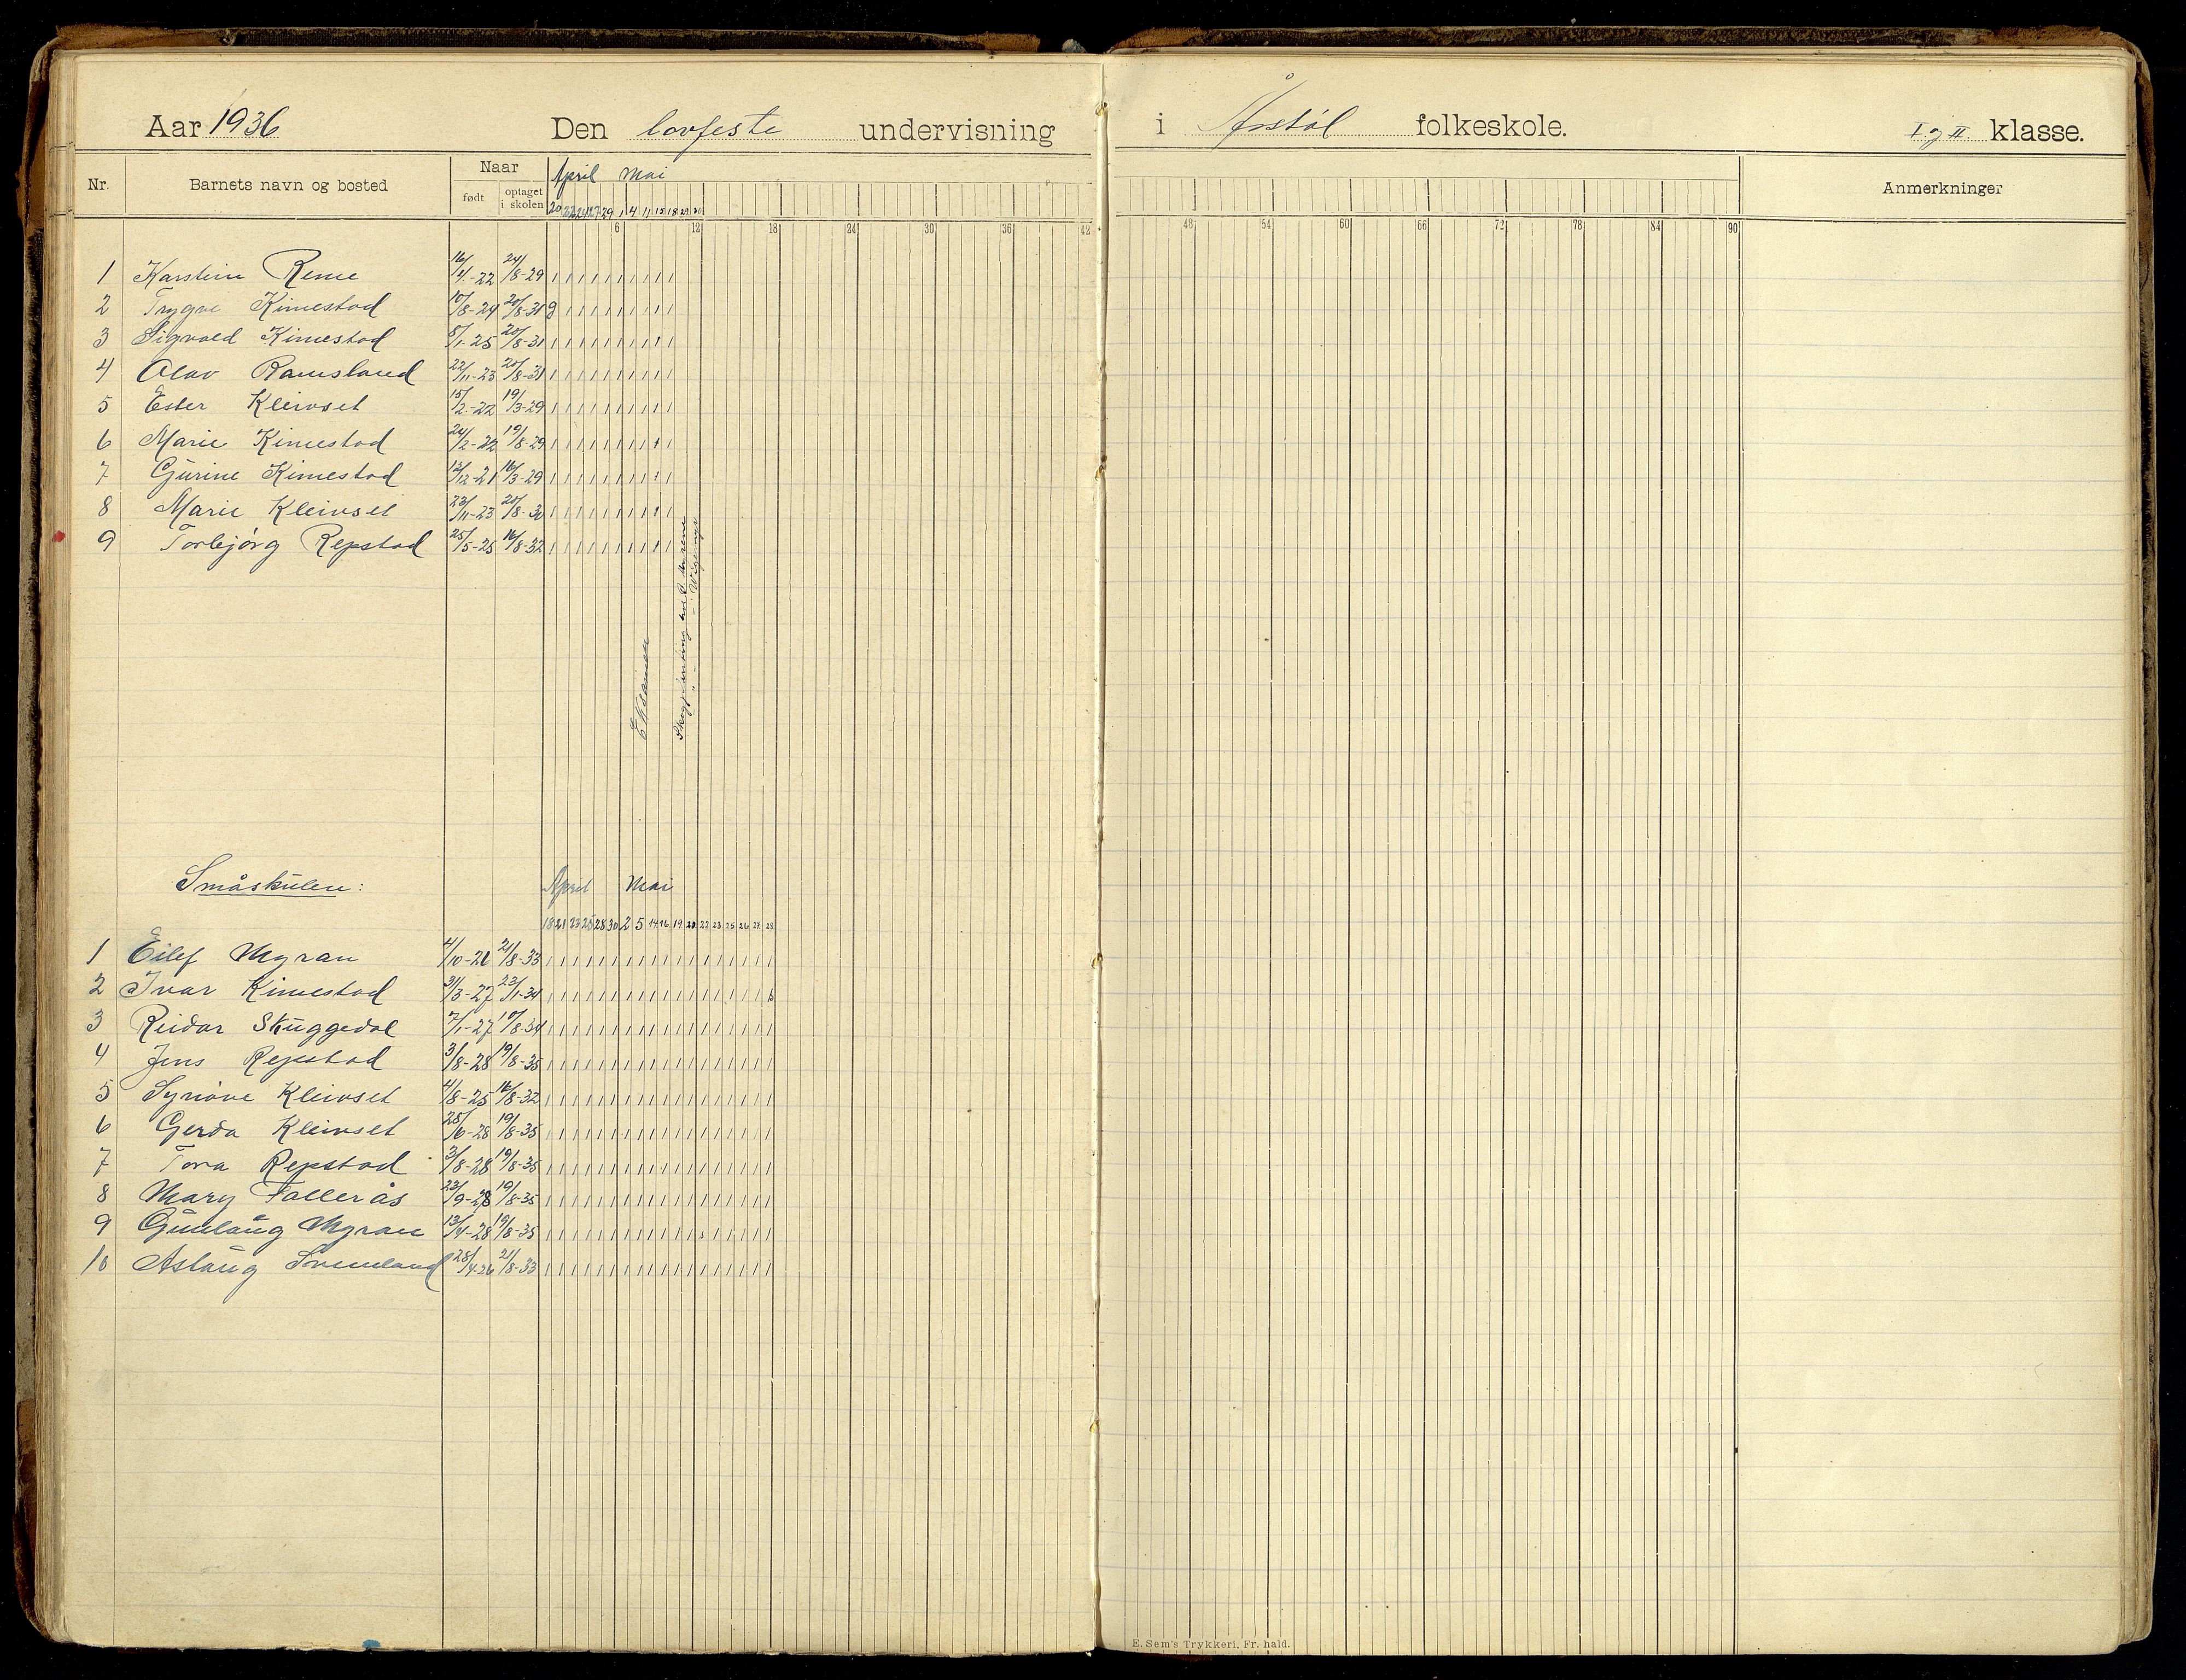 Aar 1936 Den lovfeste undervisning i Årstøl folkeskole. I og II klasse.
Nr. Barnets navn og bosted Naar født optaget i skolen April Mai Anmerkninger
20 22 24 27 29 1 4 11 15 18 20
6 12 18 24 30 36 42 48 54 60 66 72 78 84 90
1 Karstein Reme 16/4-22 24/8-29
2 Trygve Kimestad 10/8-24 20/8-31 g
3 Sigvald Kimestad 5/1-25 20/8-31
4 Olav Ramsland 22/11-23 20/8-31
5 Ester Kleivset 15/2-22 19/3-29
6 Marie Kimestad 24/2-22 19/8-29
7 Gurine Kimestad 12/12-21 16/3-29
8 Marie Kleivset 23/11-23 20/8-30
9 Torbjørg Repstad 25/5-25 16/8-32
Eksamen
Småskulen: April Mai
18 21 23 25 28 30 2 5 14 16 19 20 22 23 25 26 27 28
1 Eilef Myran 4/10-26 21/8-33
2 Ivar Kimestad 31/3-27 23/1-34
3 Reidar Skuggedal 7/1-27 17/8-34
4 Jens Repstad 3/8-28 19/8-35
5 Synøve Kleivset 4/8-25 16/8-32
6 Gerda Kleivset 25/6-28 19/8-35
7 Tora Repstad 3/8-28 19/8-35
8 Mary Fallerås 23/9-28 19/8-35
9 Gunlaug Myran 13/4-28 19/8-35
10 Aslaug Sveinland 28/4-26 21/8-33
E. Sem's Trykkeri, Fr. hald.